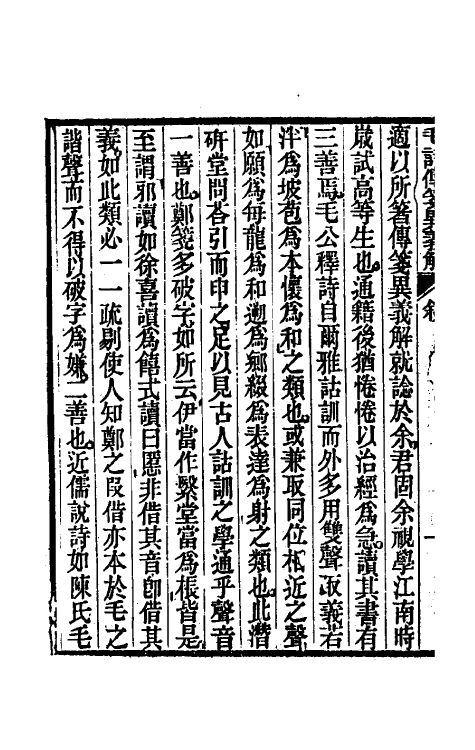 毛詩傳箋異義解 卷 一
適以所著傳箋異義解就諗於余君固余視學江南時
歲試高等生也通籍後猶惓惓以治經爲急讀其書有
三善焉毛公釋詩自爾雅詁訓而外多用雙聲取義若
泮爲坡苞爲本懷爲和之類也或兼取同位相近之聲
如願爲每龍爲和遡爲鄉綴爲表達爲射之類也此潛
硏堂問荅引而申之足以見古人詁訓之學通乎聲音
一善也鄭箋多破字如所云伊當作繄堂當爲棖皆是
至謂邪讀如徐喜讀爲饎式讀曰慝非借其音卽借其
義如此類必一一疏剔使人知鄭之叚借亦本於毛之
諧聲而不得以破字爲嫌二善也近儒說詩如陳氏毛